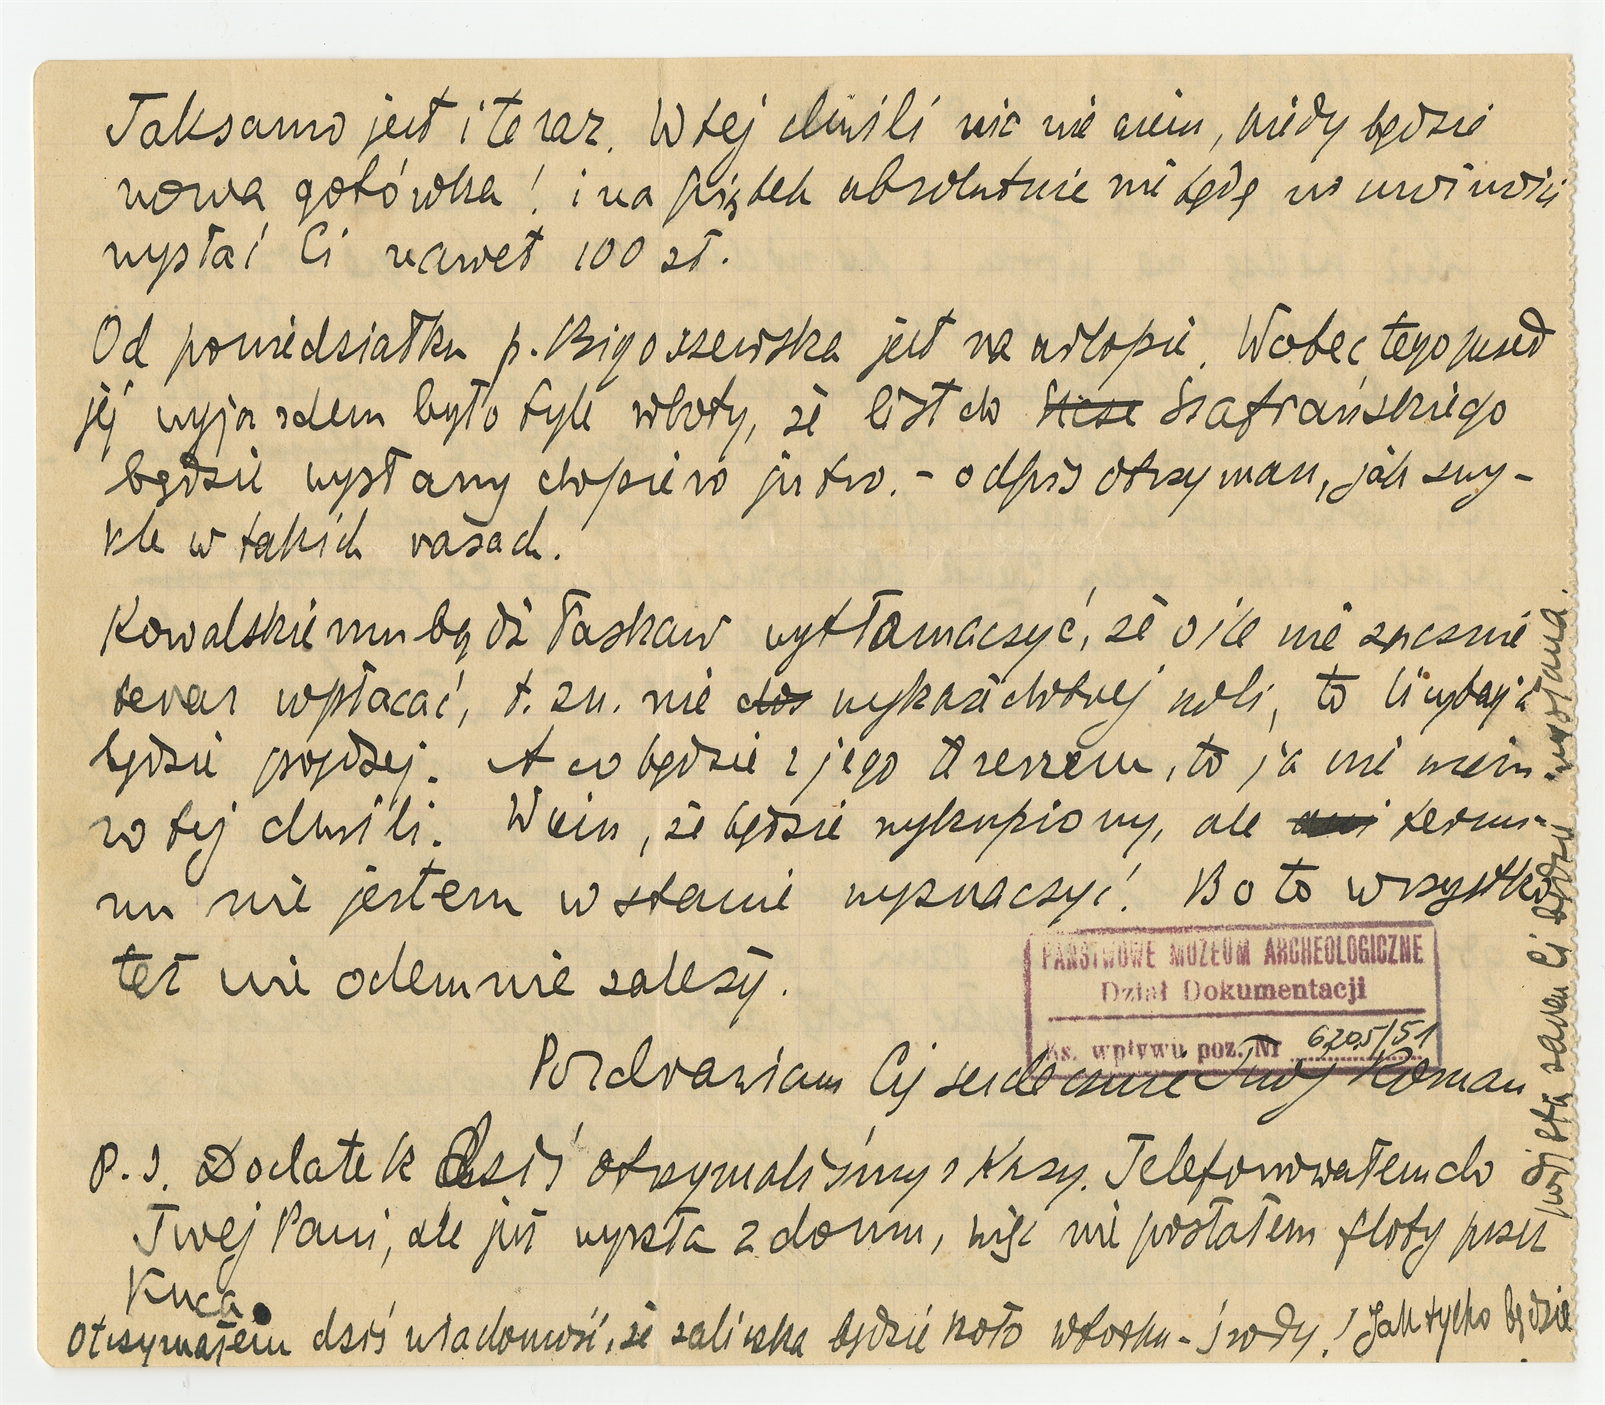 Taksamo jest i teraz. W tej chwili nic nie wiem, kiedy będzie
nowa gotówka! i na piątek absolutnie nie będę w możności
wysłać Ci nawet 100 zł.
Od poniedziałku p. Bigoszewska jest na urlopie. Wobec tego przed
jej wyjazdem było tyle roboty, że list do Szafrańskiego
będzie wysłany dopiero jutro. - odpis otrzymasz, jak zwy-
kle w takich razach.
Kowalskiemu bądź łaskaw wytłomaczyć, że o ile nie zacznie
teraz wpłacać, t. zn. nie wykaże dobrej woli, to licytacja
będzie prędzej. A co będzie z jego terenem, to ja nie wiem
w tej chwili. Wiem, że będzie wykupiony, ale termi-
nu nie jestem w stanie wyznaczyć! Bo to wszystko
też nie odemnie zależy.
PAŃSTWOWE MUZEUM ARCHEOLOGICZNE
Dział Dokumentacji
Ks. wpływu poz. Nr 6205/51
Pozdrawiam Cię serdecznie Twój Roman
P. S. Dodatek dziś otrzymaliśmy z Kasy. Telefonowałem do
Twej Pani, ale już wyszła z domu, więc nie posłałem floty przez
Kuca.
Otrzymałem dziś wiadomość, że zaliczka będzie koło wtorku - środy! Jak tylko będzie
zaraz Ci będzie wysłana.